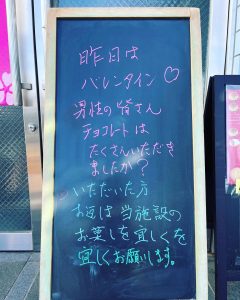 昨日は
バレンタイン♡
男性の皆さん
チョコレートは
たくさんいただき
ましたか？
いただいた方
お返は当施設の
お菓子を宜しくを
宜しくお願いします。